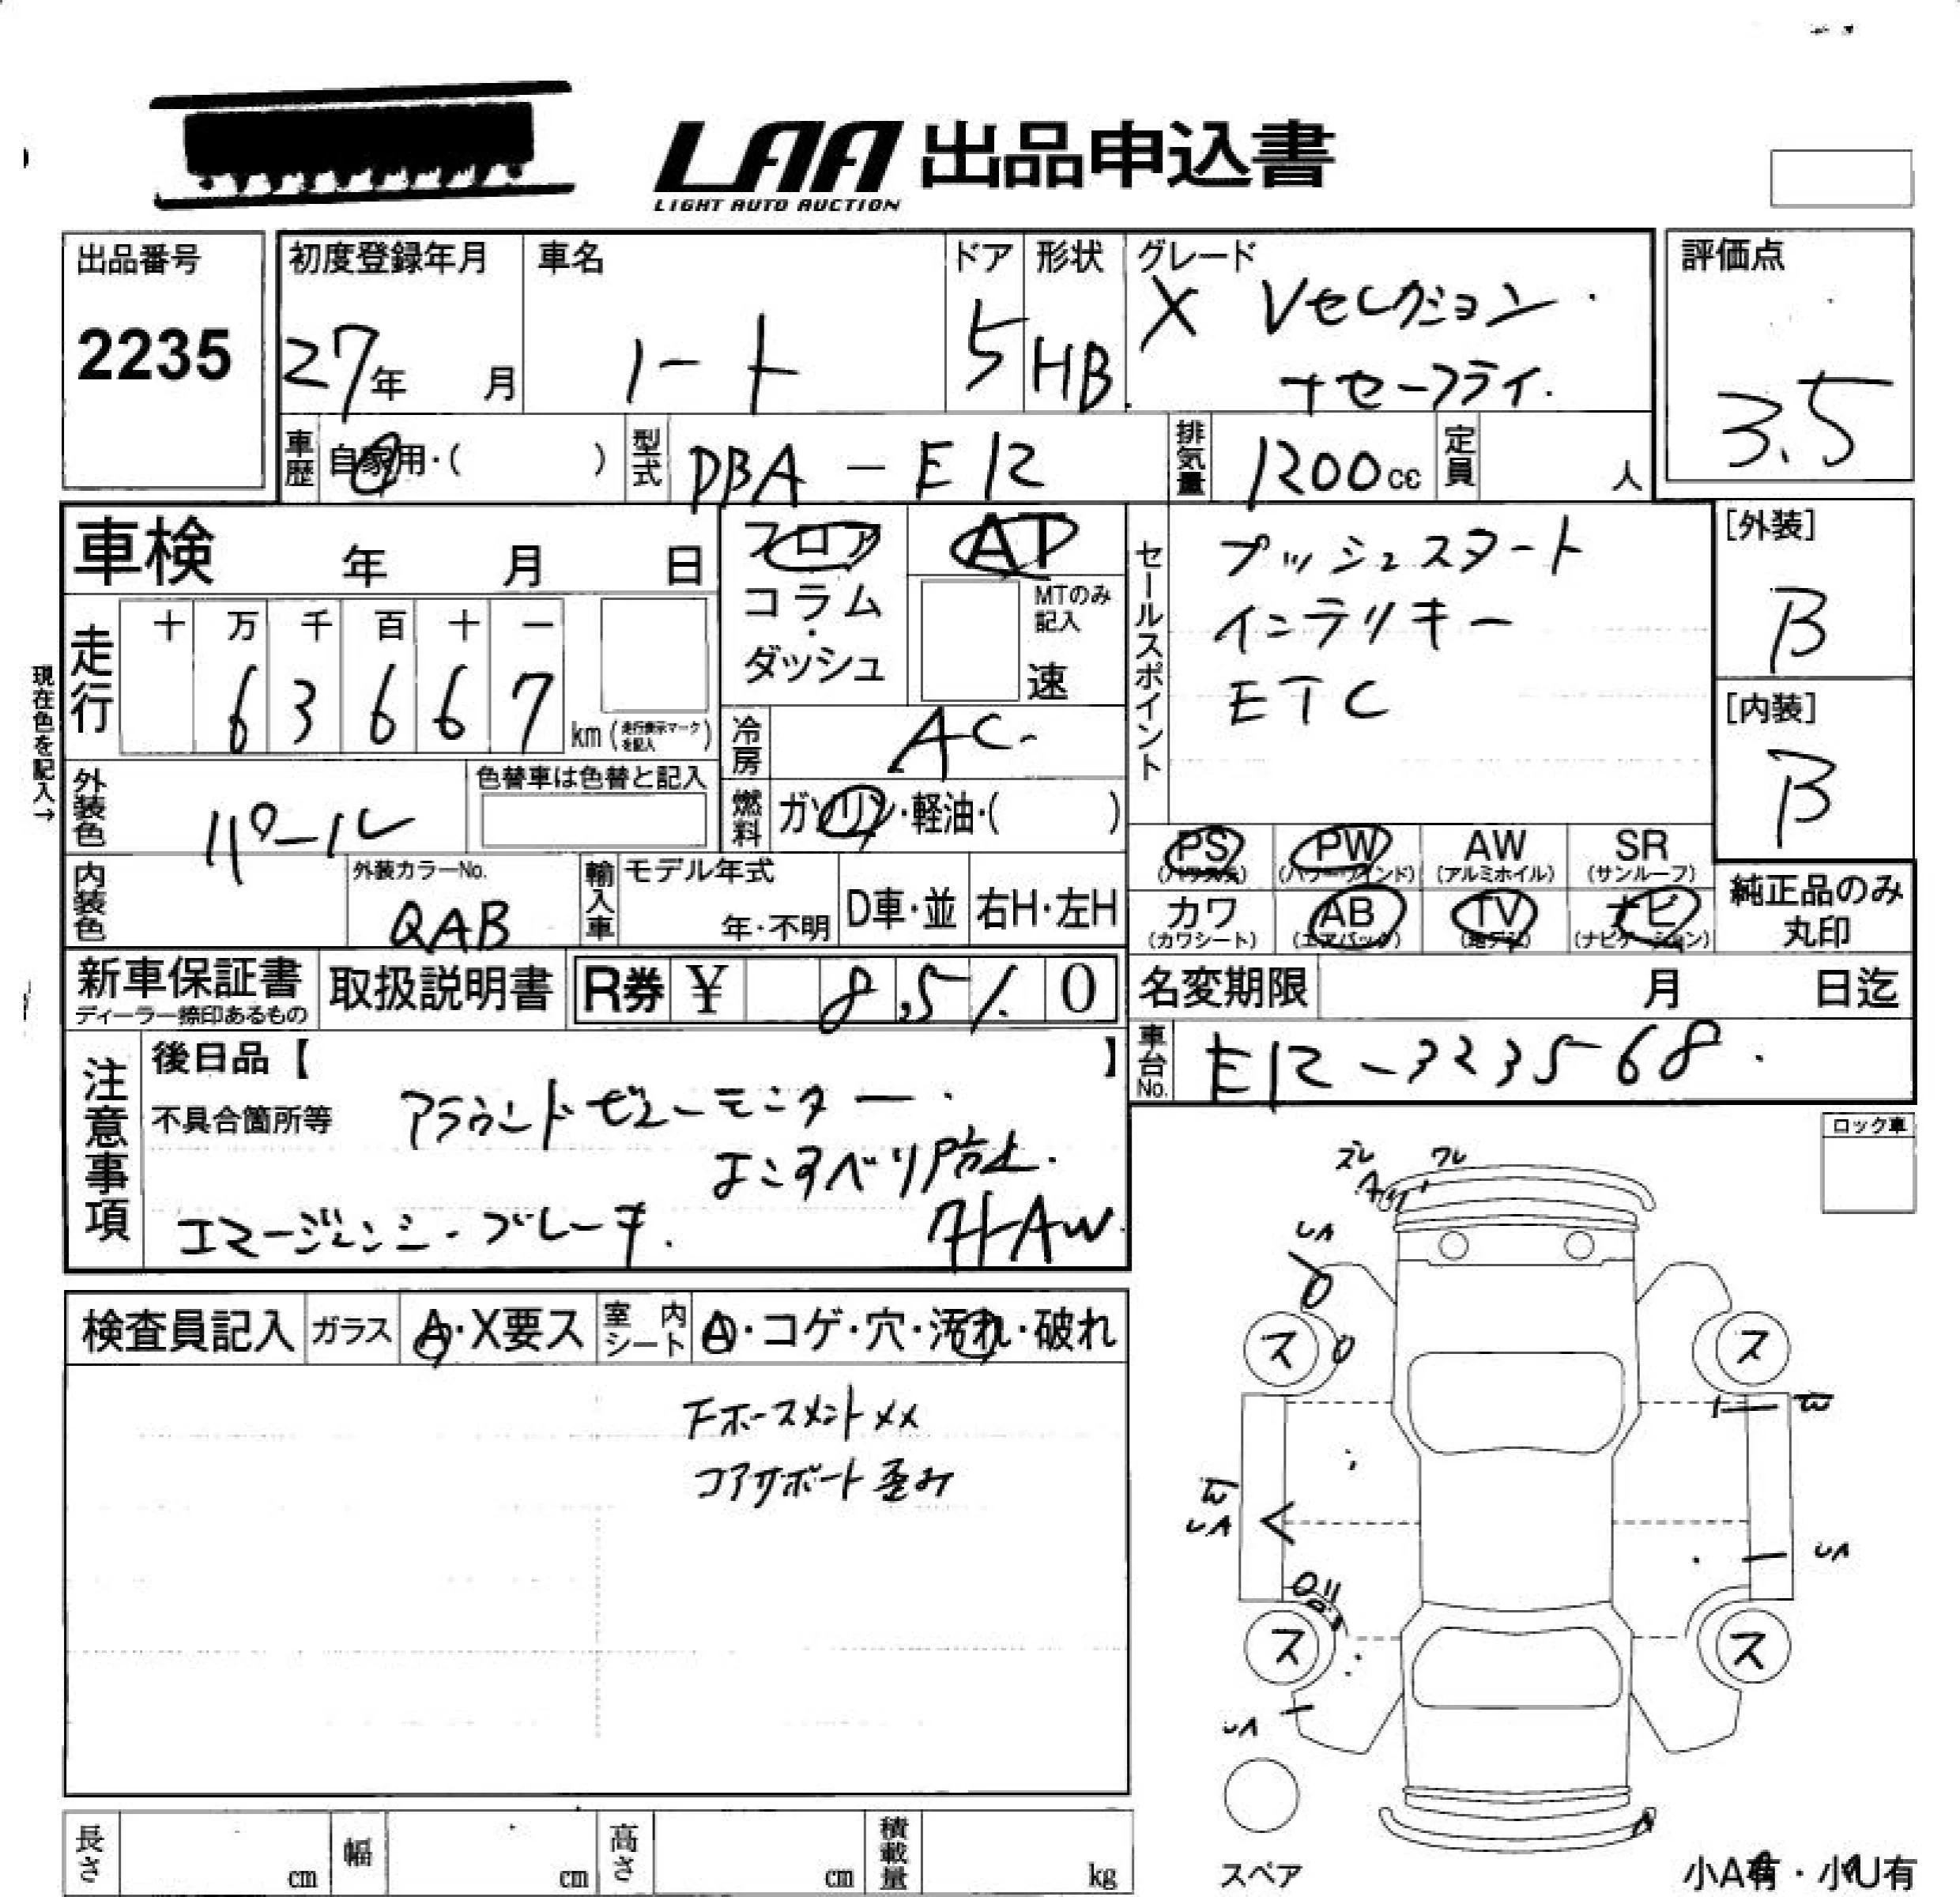 LAA 出品申込書
LIGHT AUTO AUCTION
出品番号
2235
初度登録年月
27年 月
車名
ノート
ドア
5
形状
HB
グレード
X Vセレクション
+セーフティ
評価点
3.5
車歴
自家用・( )
型式
DBA-E12
排気量
1200cc
定員
人
車検 年 月 日
フロア
コラム
・
ダッシュ
AT
MTのみ
記入
速
セールスポイント
プッシュスタート
インテリキー
ETC
[外装]
B
[内装]
B
現在色を記入→
走行
十 万 千 百 十 一
6 3 6 6 7
km(走行表示マークを記入)
冷房
AC
外装色
パール
色替車は色替と記入
燃料
ガソリン・軽油・( )
PS
(パワステ)
PW
(パワーウインド)
AW
(アルミホイル)
SR
(サンルーフ)
カワ
(カワシート)
AB
(エアバック)
TV
(地デジ)
ナビ
(ナビゲーション)
純正品のみ
丸印
内装色
外装カラーNo.
QAB
輸入車
モデル年式
年・不明
D車・並
右H・左H
新車保証書
ディーラー捺印あるもの
取扱説明書
R券 ¥ 8,51 0
名変期限 月 日迄
車台No.
E12-323568
注意事項
後日品【 】
不具合箇所等
アラウンドビューモニター
よこすべり防止
エマージェンシーブレーキ
社外AW
ロック車
検査員記入
ガラス
A・X要ス
室内シート
A・コゲ・穴・汚れ・破れ
Fホースメント××
コアサポート歪み
ズレ
ワレ
UA
ス
ス
W
W
UA
UA
ス
ス
UA
スペア
小A有・小U有
長さ cm
幅 cm
高さ cm
積載量 kg